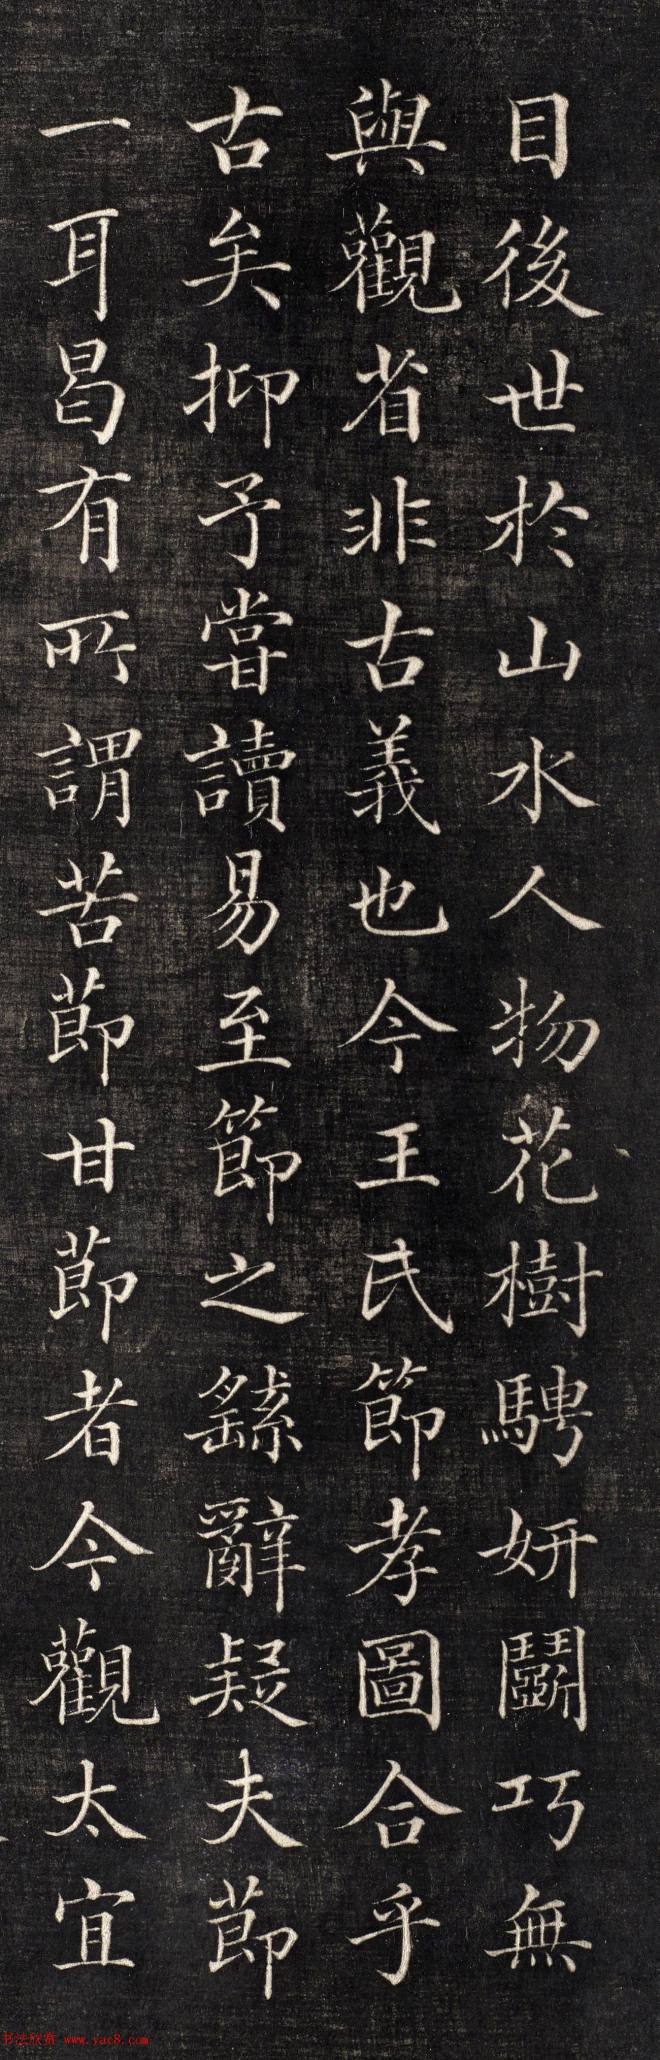 目後世於山水人物花樹騁妍鬭巧無
與觀省非古義也今王氏節孝圖合乎
古矣抑予嘗讀易至節之繇辭疑夫節
一耳曷有所謂苦節甘節者今觀太宜
书法欣赏 www.yac8.com